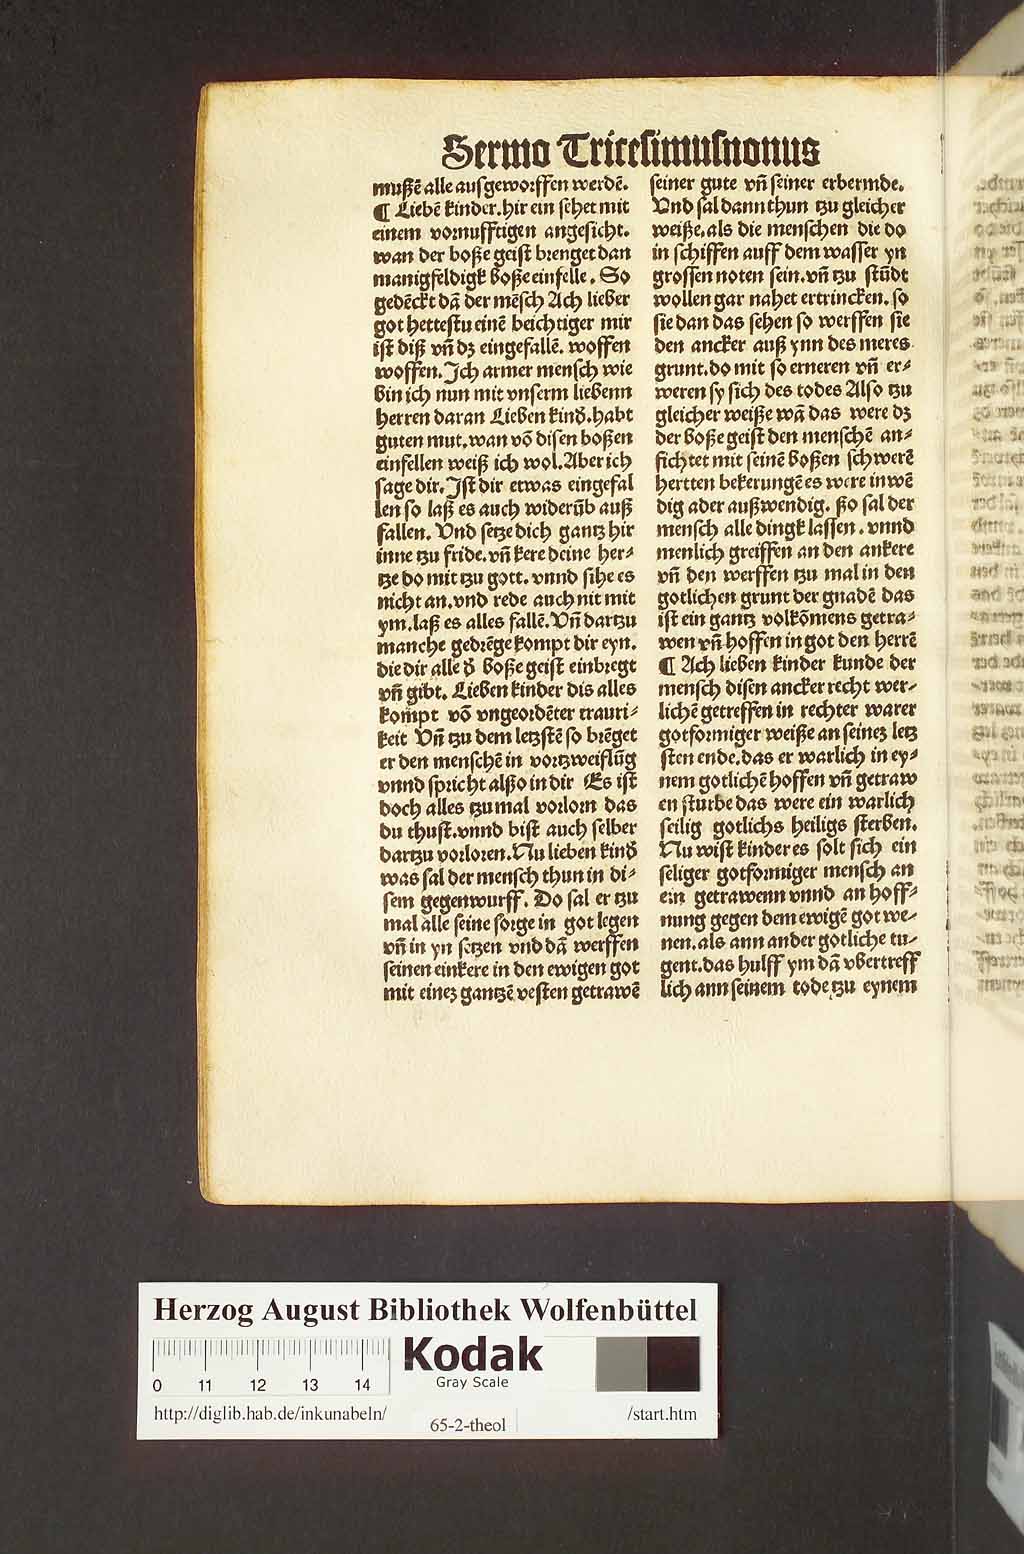 Sermo Tricesimusnonus
mußē alle ausgeworffen werdē.
¶ Liebē kinder. hir ein sehet mit
einem vornufftigen angesicht.
wan der boße geist brenget dan
manigfeldigk boße einfelle. So
gedēckt dā der mēsch Ach lieber
got hettestu einē beichtiger mir
ist diß vn̄ dz eingefallē. woffen
woffen. Ich armer mensch wie
bin ich nun mit vnserm liebenn
herren daran Lieben kinđ. habt
guten mut. wan vō disen boßen
einfellen weiß ich wol. Aber ich
sage dir. Ist dir etwas eingefal
len so laß es auch widerūb auß
fallen. Vnd setze dich gantz hir
inne tzu fride. vn̄ kere deine her⸗
tze do mit tzu gott. vnnd sihe es
nicht an. vnd rede auch nit mit
ym. laß es alles fallē. Vn̄ dartzu
manche gedrēge kompt dir eyn.
die dir alle đ boße geist einbregt
vn̄ gibt. Lieben kinder dis alles
kompt vō vngeordēter trauri⸗
keit Vn̄ tzu dem letzstē so brēget
er den menschē in vortzweiflūg
vnnd spricht alßo in dir Es ist
doch alles tzumal vorlorn das
du thust. vnnd bist auch selber
dartzu vorloren. Nu lieben kinđ
was sal der mensch thun in di⸗
sem gegenwurff. Do sal er tzu
mal alle seine sorge in got legen
vn̄ in yn setzen vnd dā werffen
seinen einkere in den ewigen got
mit einez gantzē vesten getrawē
seiner gute vn̄ seiner erbermde.
Vnd sal dann thun tzu gleicher
weiße. als die menschen die do
in schiffen auff dem wasser yn
grossen noten sein. vn̄ tzu stūdt
wollen gar nahet ertrincken. so
sie dan das sehen so werffen sie
den ancker auß ynn des meres
grunt. do mit so erneren vn̄ er⸗
weren sy sich des todes Also tzu
gleicher weiße wā das were dz
der boße geist den menschē an⸗
fichtet mit seinē boßen schwerē
hertten bekerungē es were inwē
dig ader außwendig. ßo sal der
mensch alle dingk lassen. vnnd
menlich greiffen an den ankere
vn̄ den werffen tzu mal in den
gotlichen grunt der gnadē das
ist ein gantz volkōmens getra⸗
wen vn̄ hoffen in got den herrē
¶ Ach lieben kinder kunde der
mensch disen ancker recht wer⸗
lichē getreffen in rechter warer
gotformiger weiße an seinez letz
sten ende. das er warlich in ey⸗
nem gotlichē hoffen vn̄ getraw
en sturbe das were ein warlich
seilig gotlichs heiligs sterben.
Nu wist kinder es solt sich ein
seliger gotformiger mensch an
ein getrawenn vnnd an hoff⸗
nung gegen dem ewigē got we⸗
nen. als ann ander gotliche tu⸗
gent. das hulff ym dā vbertreff
lich ann seinem tode tzu eynem
Herzog August Bibliothek Wolfenbüttel
Kodak
Gray Scale
0 11 12 13 14
http://diglib.hab.de/inkunabeln/
65-2-theol
/start.htm